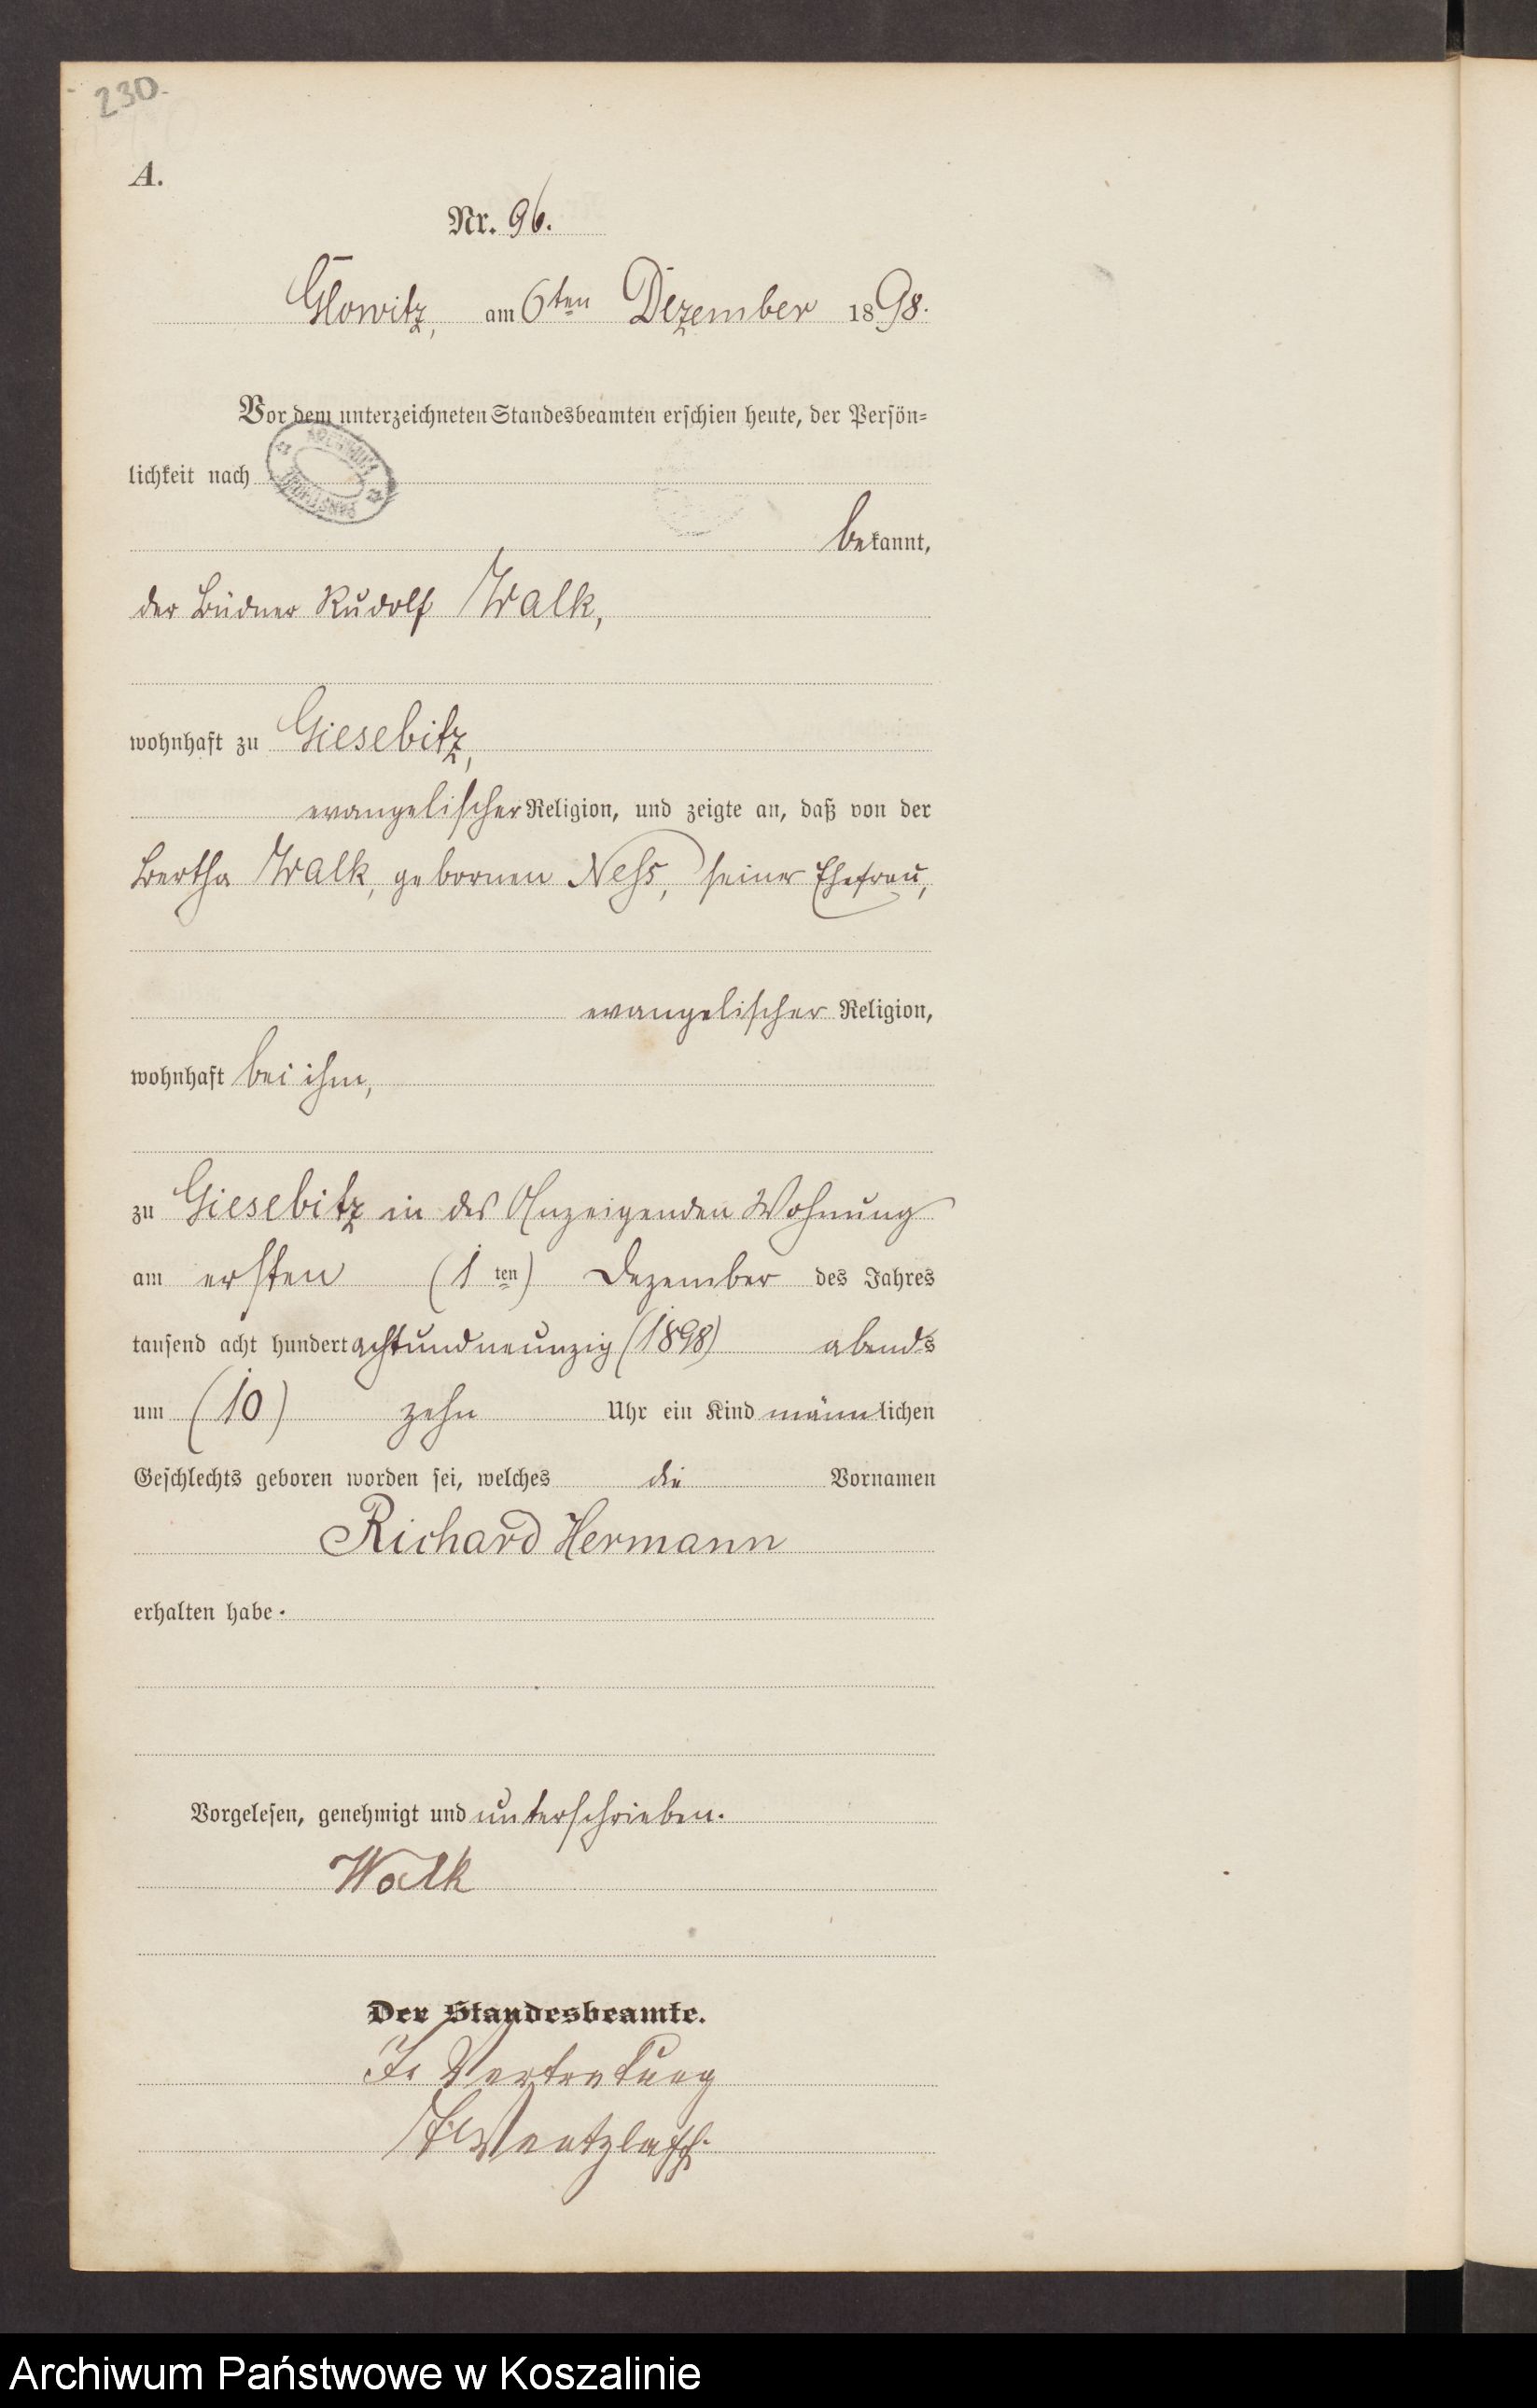 230.
A.
Nr. 96.
Glowitz, am 6ten Dezember 1898.
Vor dem unterzeichneten Standesbeamten erschien heute, der Persön-
lichkeit nach
bekannt,
der Büdner Rudolf Walk,
wohnhaft zu Giesebitz,
evangelischer Religion, und zeigte an, daß von der
Bertha Walk, gebornen Ness, seiner Ehefrau,
evangelischer Religion,
wohnhaft bei ihm,
zu Giesebitz in des Anzeigenden Wohnung
am ersten (1ten) Dezember des Jahres
tausend acht hundert achtundneunzig (1898) abends
um (10) zehn Uhr ein Kind männlichen
Geschlechts geboren worden sei, welches die Vornamen
Richard Hermann
erhalten habe.
Vorgelesen, genehmigt und unterschrieben.
Walk
Der Standesbeamte.
In Vertretung
Wentzlaff.
Archiwum Państwowe w Koszalinie